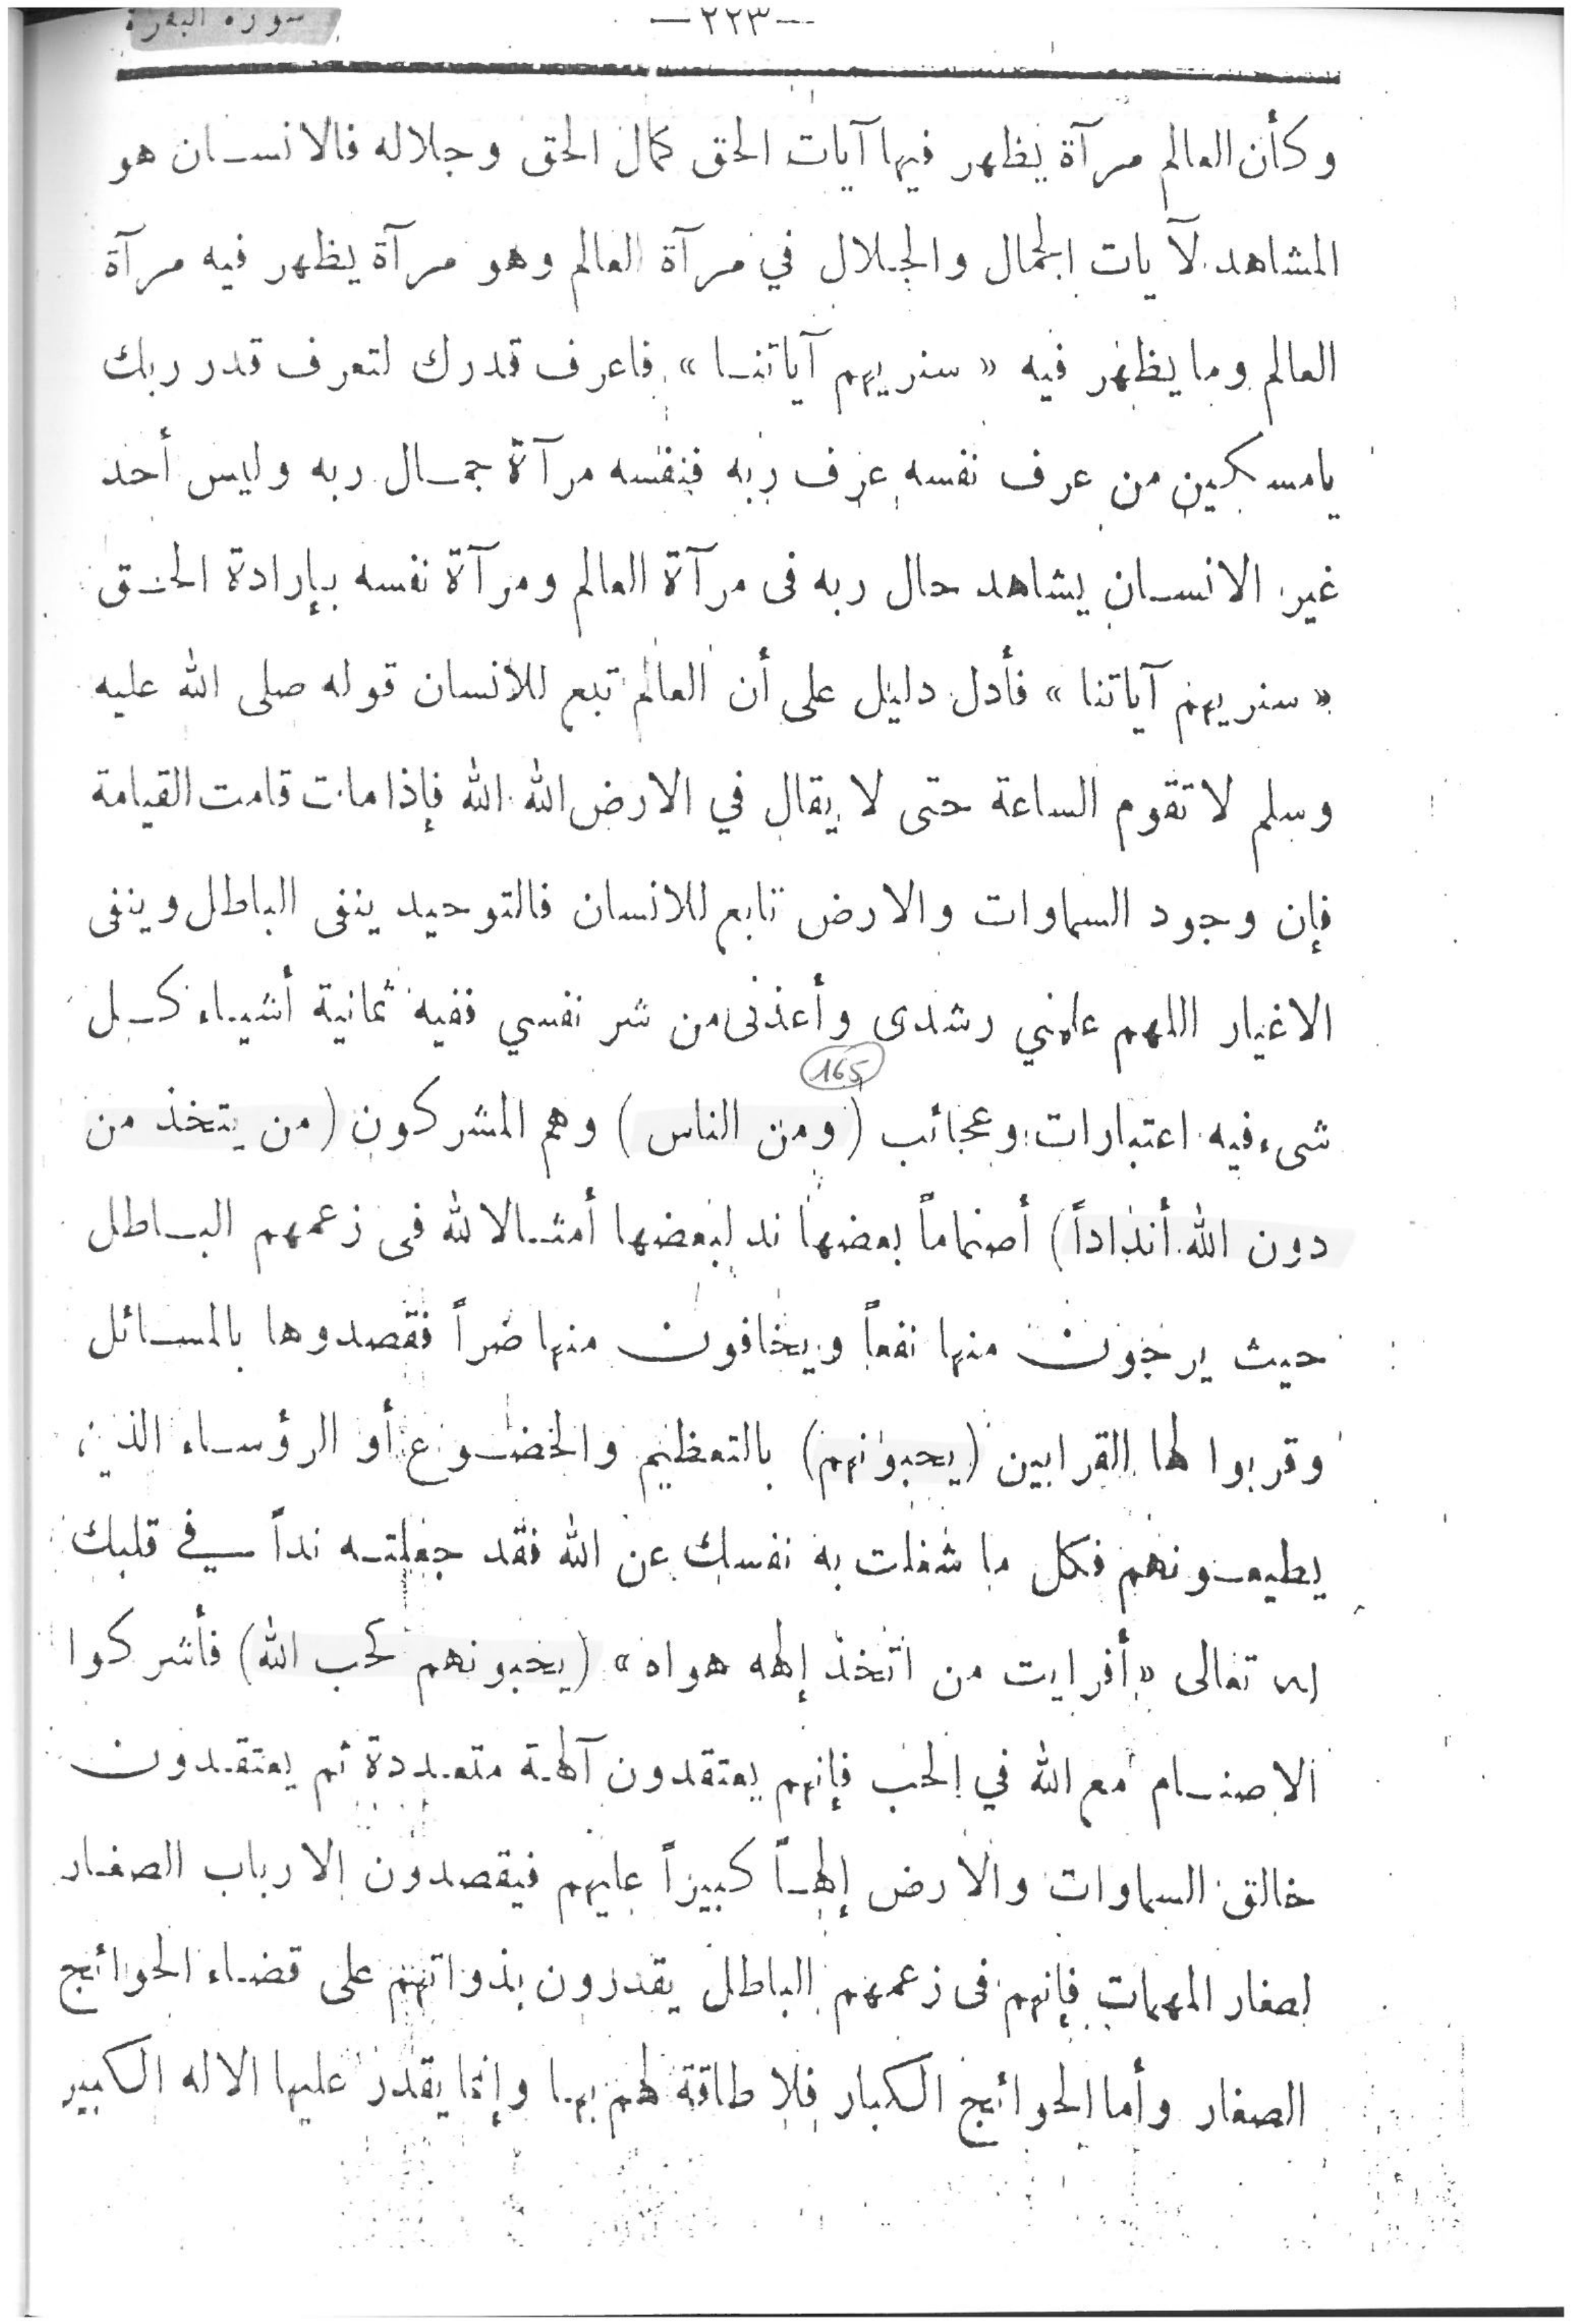 سورة البقرة
—٢٢٣—
وكأن العالم مرآة يظهر فيها آيات الحق كمال الحق وجلاله فالانسان هو
المشاهد لآيات الجمال والجلال في مرآة العالم وهو مرآة يظهر فيه مرآة
العالم وما يظهر فيه « سنريهم آياتنا » فاعرف قدرك لتعرف قدر ربك
يامسكين من عرف نفسه عرف ربه فنفسه مرآة جمال ربه وليس أحد
غير الانسان يشاهد حال ربه فى مرآة العالم ومرآة نفسه بإرادة الحق
« سنريهم آياتنا » فأدل دليل على أن العالم تبع للانسان قوله صلى الله عليه
وسلم لا تقوم الساعة حتى لا يقال في الارض الله الله فإذا مات قامت القيامة
فإن وجود السماوات والارض تابع للانسان فالتوحيد ينفى الباطل وينفى
الاغيار اللهم علمني رشدى وأعذنى من شر نفسي ففيه ثمانية أشياء كل
165
شىء فيه اعتبارات وعجائب (ومن الناس) وهم المشركون (من يتخذ من
دون الله أنداداً) أصناماً بعضها ند لبعضها أمثالا لله فى زعمهم الباطل
حيث يرجون منها نفعاً ويخافون منها ضراً فقصدوها بالمسائل
وقربوا لها القرابين (يحبونهم) بالتعظيم والخضوع أو الرؤساء الذين
يطيعونهم فكل ما شغلت به نفسك عن الله فقد جعلته نداً في قلبك
تعالى « أفرايت من اتخذ إلهه هواه » (يحبونهم كحب الله) فأشركوا
الاصنام مع الله في الحب فإنهم يعتقدون آلهة متعددة ثم يعتقدون
خالق السماوات والارض إلهاً كبيراً عليهم فيقصدون الارباب الصغار
لصغار المهمات فإنهم فى زعمهم الباطل يقدرون بذواتهم على قضاء الحوائج
الصغار وأما الحوائج الكبار فلا طاقة لهم بها وإنما يقدر عليها الاله الكبير